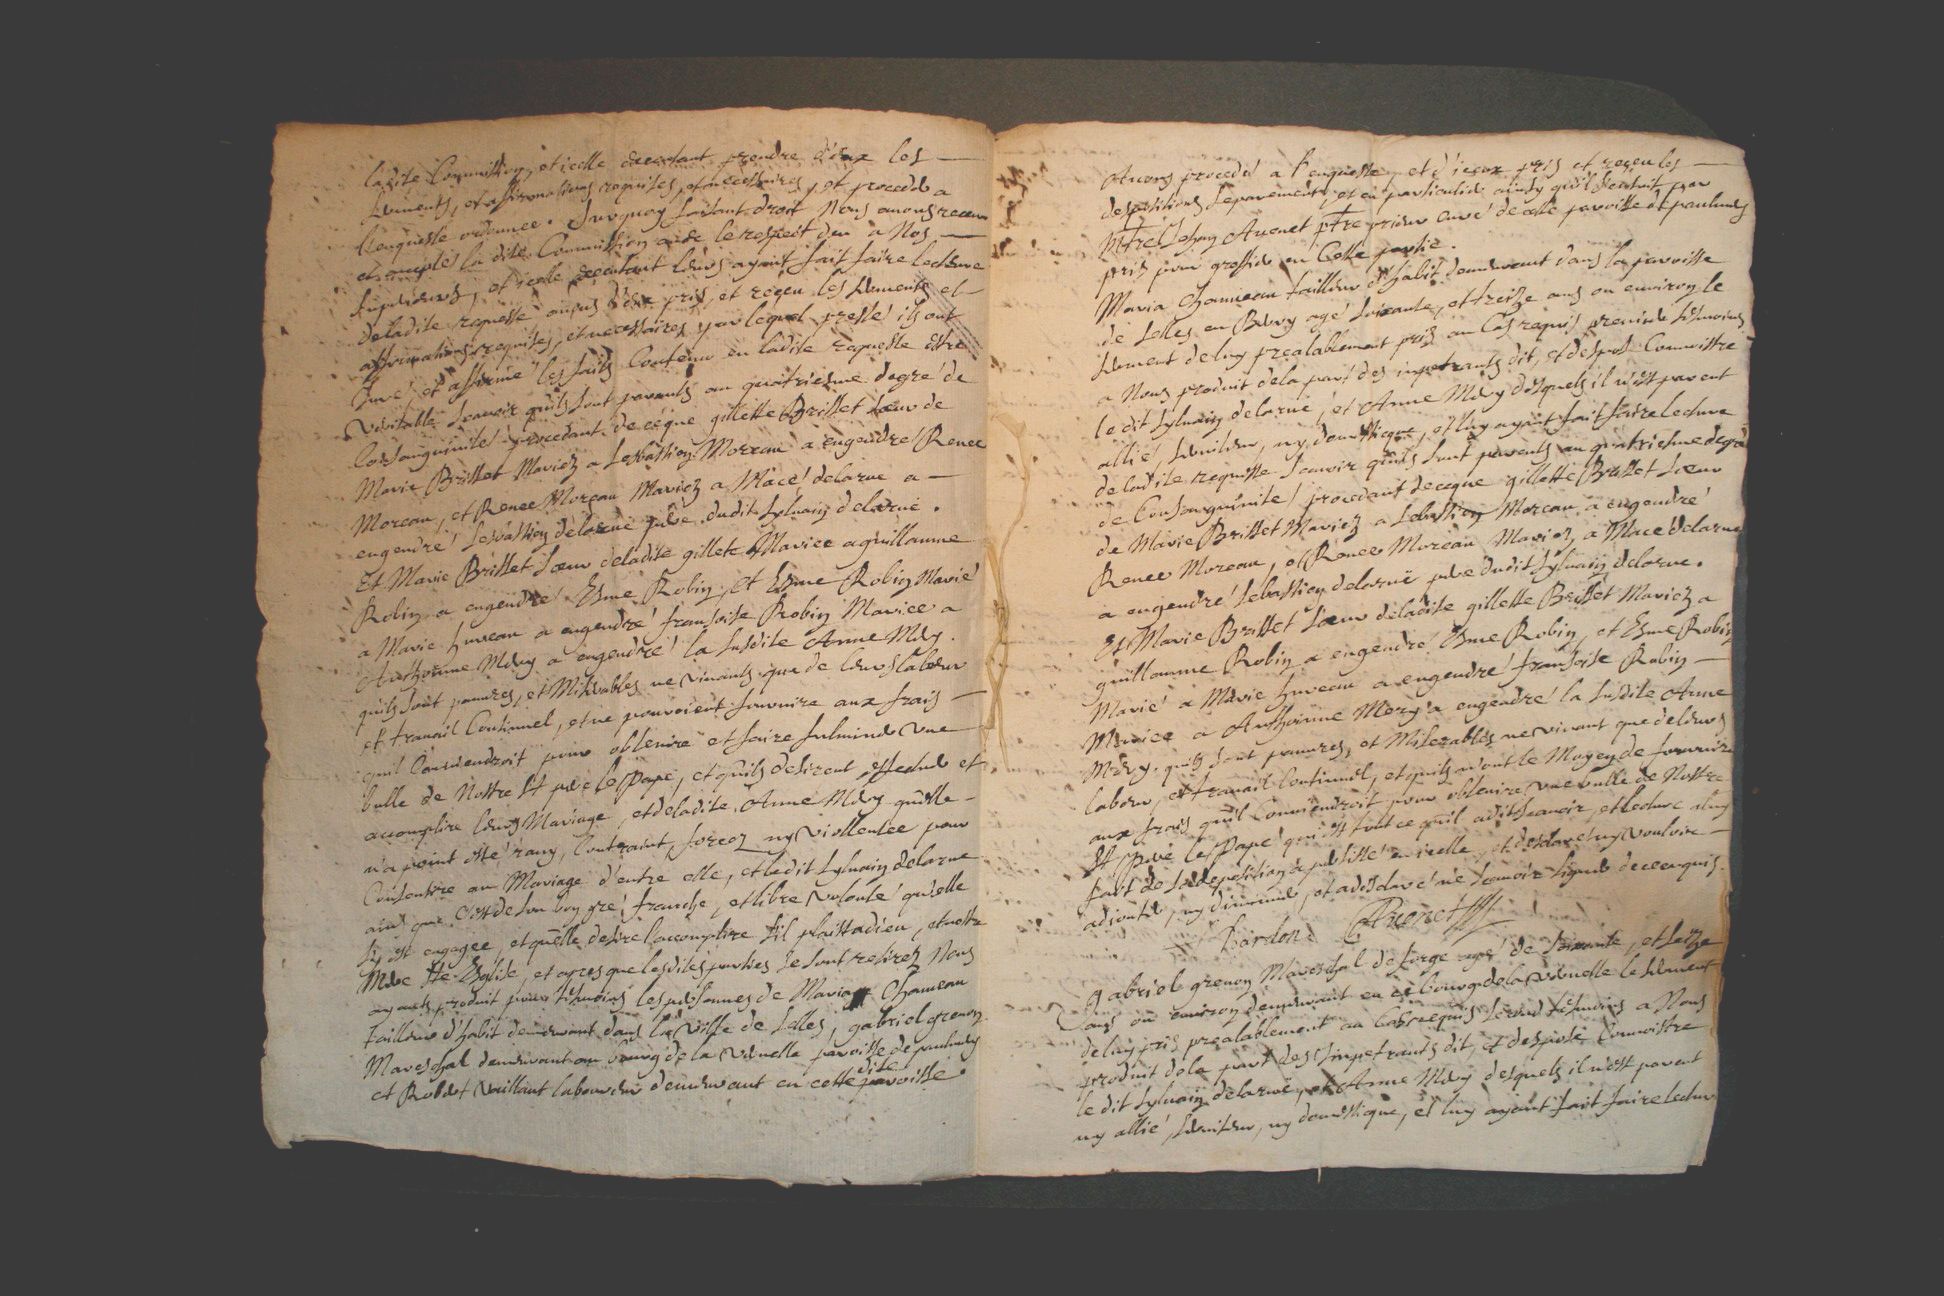 ladite Commission, et icelle executant prendre d'eux les
serments, et affirmations requises, et necessaires, et proceder a
l'enqueste ordonnee. Surquoy faisant droit Nous avons receu
et accepté la dite Commission avec le respect deu a Nos
superieurs, et icelle executant leurs ayant fait faire lecture
de ladite requeste avons d'eux pris, et reçeu les serments et
affirmations requises, et necessaires par lequel presté ils ont
Juré, et affirmé les faits Contenu en ladite requeste estre
veritable scavoir quils sont parents au quatriesme degré de
Consanguinité procedant de ceque gillette Brisset soeur de
Marie Brisset Mariez a Sebastien Moreau a engendré Renee
Moreau, et Renee Moreau Mariez a Macé delarue a
engendré Sebastien delarue pere dudit Sylvain delarue.
Et Marie Brisset soeur deladite gillete Mariee a guillaume
Robin a engendré Esme Robin, et Esme Robin Marié
a Marie huveau a engendré fransoise Robin Mariee a
Anthoinne Mery a engendré la susdite Anne Mery.
quils sont pauvres, et Miserables ne vivants que de leurs labeur
et travail Continuel, et ne pouvoient fournire aux frais
quil Conviendroit pour obtenire et faire fulminer une
bulle de Nostre St pere le Pape, et quils desirent effectuer et
accomplire leurs Mariage, et deladite Anne Mery quelle
n'a point esté ravy, Contraint, forcez ny viollentee pour
Consentire au Mariage d'entre elle, et ledit Sylvain delarue
ains que C'est de son bon gré franche, et libre volonté qu'elle
sy est engagee, et quelle desire l'accomplire s'il plaist a dieu, et nostre
Mere Ste Eglise, et apres que lesdites parties se sont retirez Nous
ayants produit pour tesmoins les personnes de Maria Chameau
tailleur d'habit demeurant dans la ville de Selles, gabriel grenon
Mareschal demeurant au bourg de la vernelle paroisse de paulmery
et Robert vaillant laboureur demeurant en cette dite paroisse.
Avons procedé a l'enqueste, et d'iceux pris et reçeu les
despositions separement, et en particulier ainsy quil sensuit par
Mtre Jehan Avenet ptre prieur curé de cette paroisse de paulmery
pris pour greffier en Cette partie.
Maria Chameau tailleur d'habit demeurant dans la paroisse
de Selles en Berry agé soixante, et treize ans ou environ le
serment de luy prealablement pris au Cas requis premier tesmoins
a Nous produit de la part des impetrants dit, et despose Connoistre
le dit Sylvain delarue, et Anne Mery desquels il n'est parent
allié serviteur, ny domestique, et luy ayant fait faire lecture
de ladite requeste scavoir quils sont parents au quatriesme degré
de Consanguinité procedant deceque gillette Brisset soeur
de Marie Brisset Mariez a Sebastien Moreau a engendré
Renee Moreau, et Renee Moreau Mariez a Macé delarue
a engendré Sebastien delarue pere dudit Sylvain delarue.
Et Marie Brisset soeur deladite gillette Brisset Mariez a
guillaume Robin a engendré Esme Robin, et Esme Robin
Marié a Marie huveau a engendré fransoise Robin
Mariee a Anthoinne Mery a engendré la susdite Anne
Mery. quils sont pauvres, et Miserables ne vivant que de leurs
labeur, et travail Continuel, et quils n'ont le Moyen de fournire
aux frais quil Conviendroit pour obtenire une bulle de Nostre
St Pere le Pape qui est tout ce quil a dit scavoir, et lecture a luy
fait de sa deposition a persisté en icelle, et declare n'y vouloire
adiouter, ny diminuer, et a declaré ne scavoir signer de ce enquis.
Bardon Avenet
gabriel grenon Mareschal de forge agé de soixante, et seize
ans ou environ demeurant en ce bourg de la vernelle le serment
de luy pris prealablement au Cas requis second tesmoins a Nous
produit de la part des Impetrants dit, et despose Connoistre
le dit Sylvain delarue, et Anne Mery desquels il n'est parent
ny allié, serviteur, ny domestique, et luy ayant fait faire lecture